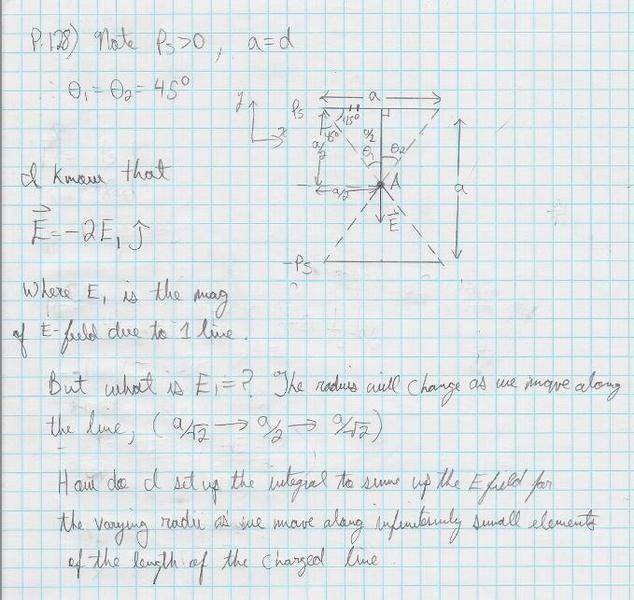 P.128) Note ρs>0, a=d
θ1=θ2=45°
y
x
ρs
a
45°
45°
a/2
a/2
θ1
θ2
A
a/2
E⃗
a
-ρs
I know that
E⃗=-2E1 ĵ
Where E1 is the mag
of E-field due to 1 line.
But what is E1=? The radius will change as we move along
the line, (a/√2 → a/2 → a/√2)
How do I set up the integral to sum up the E field for
the varying radii as we move along small elements
of the length of the charged line.